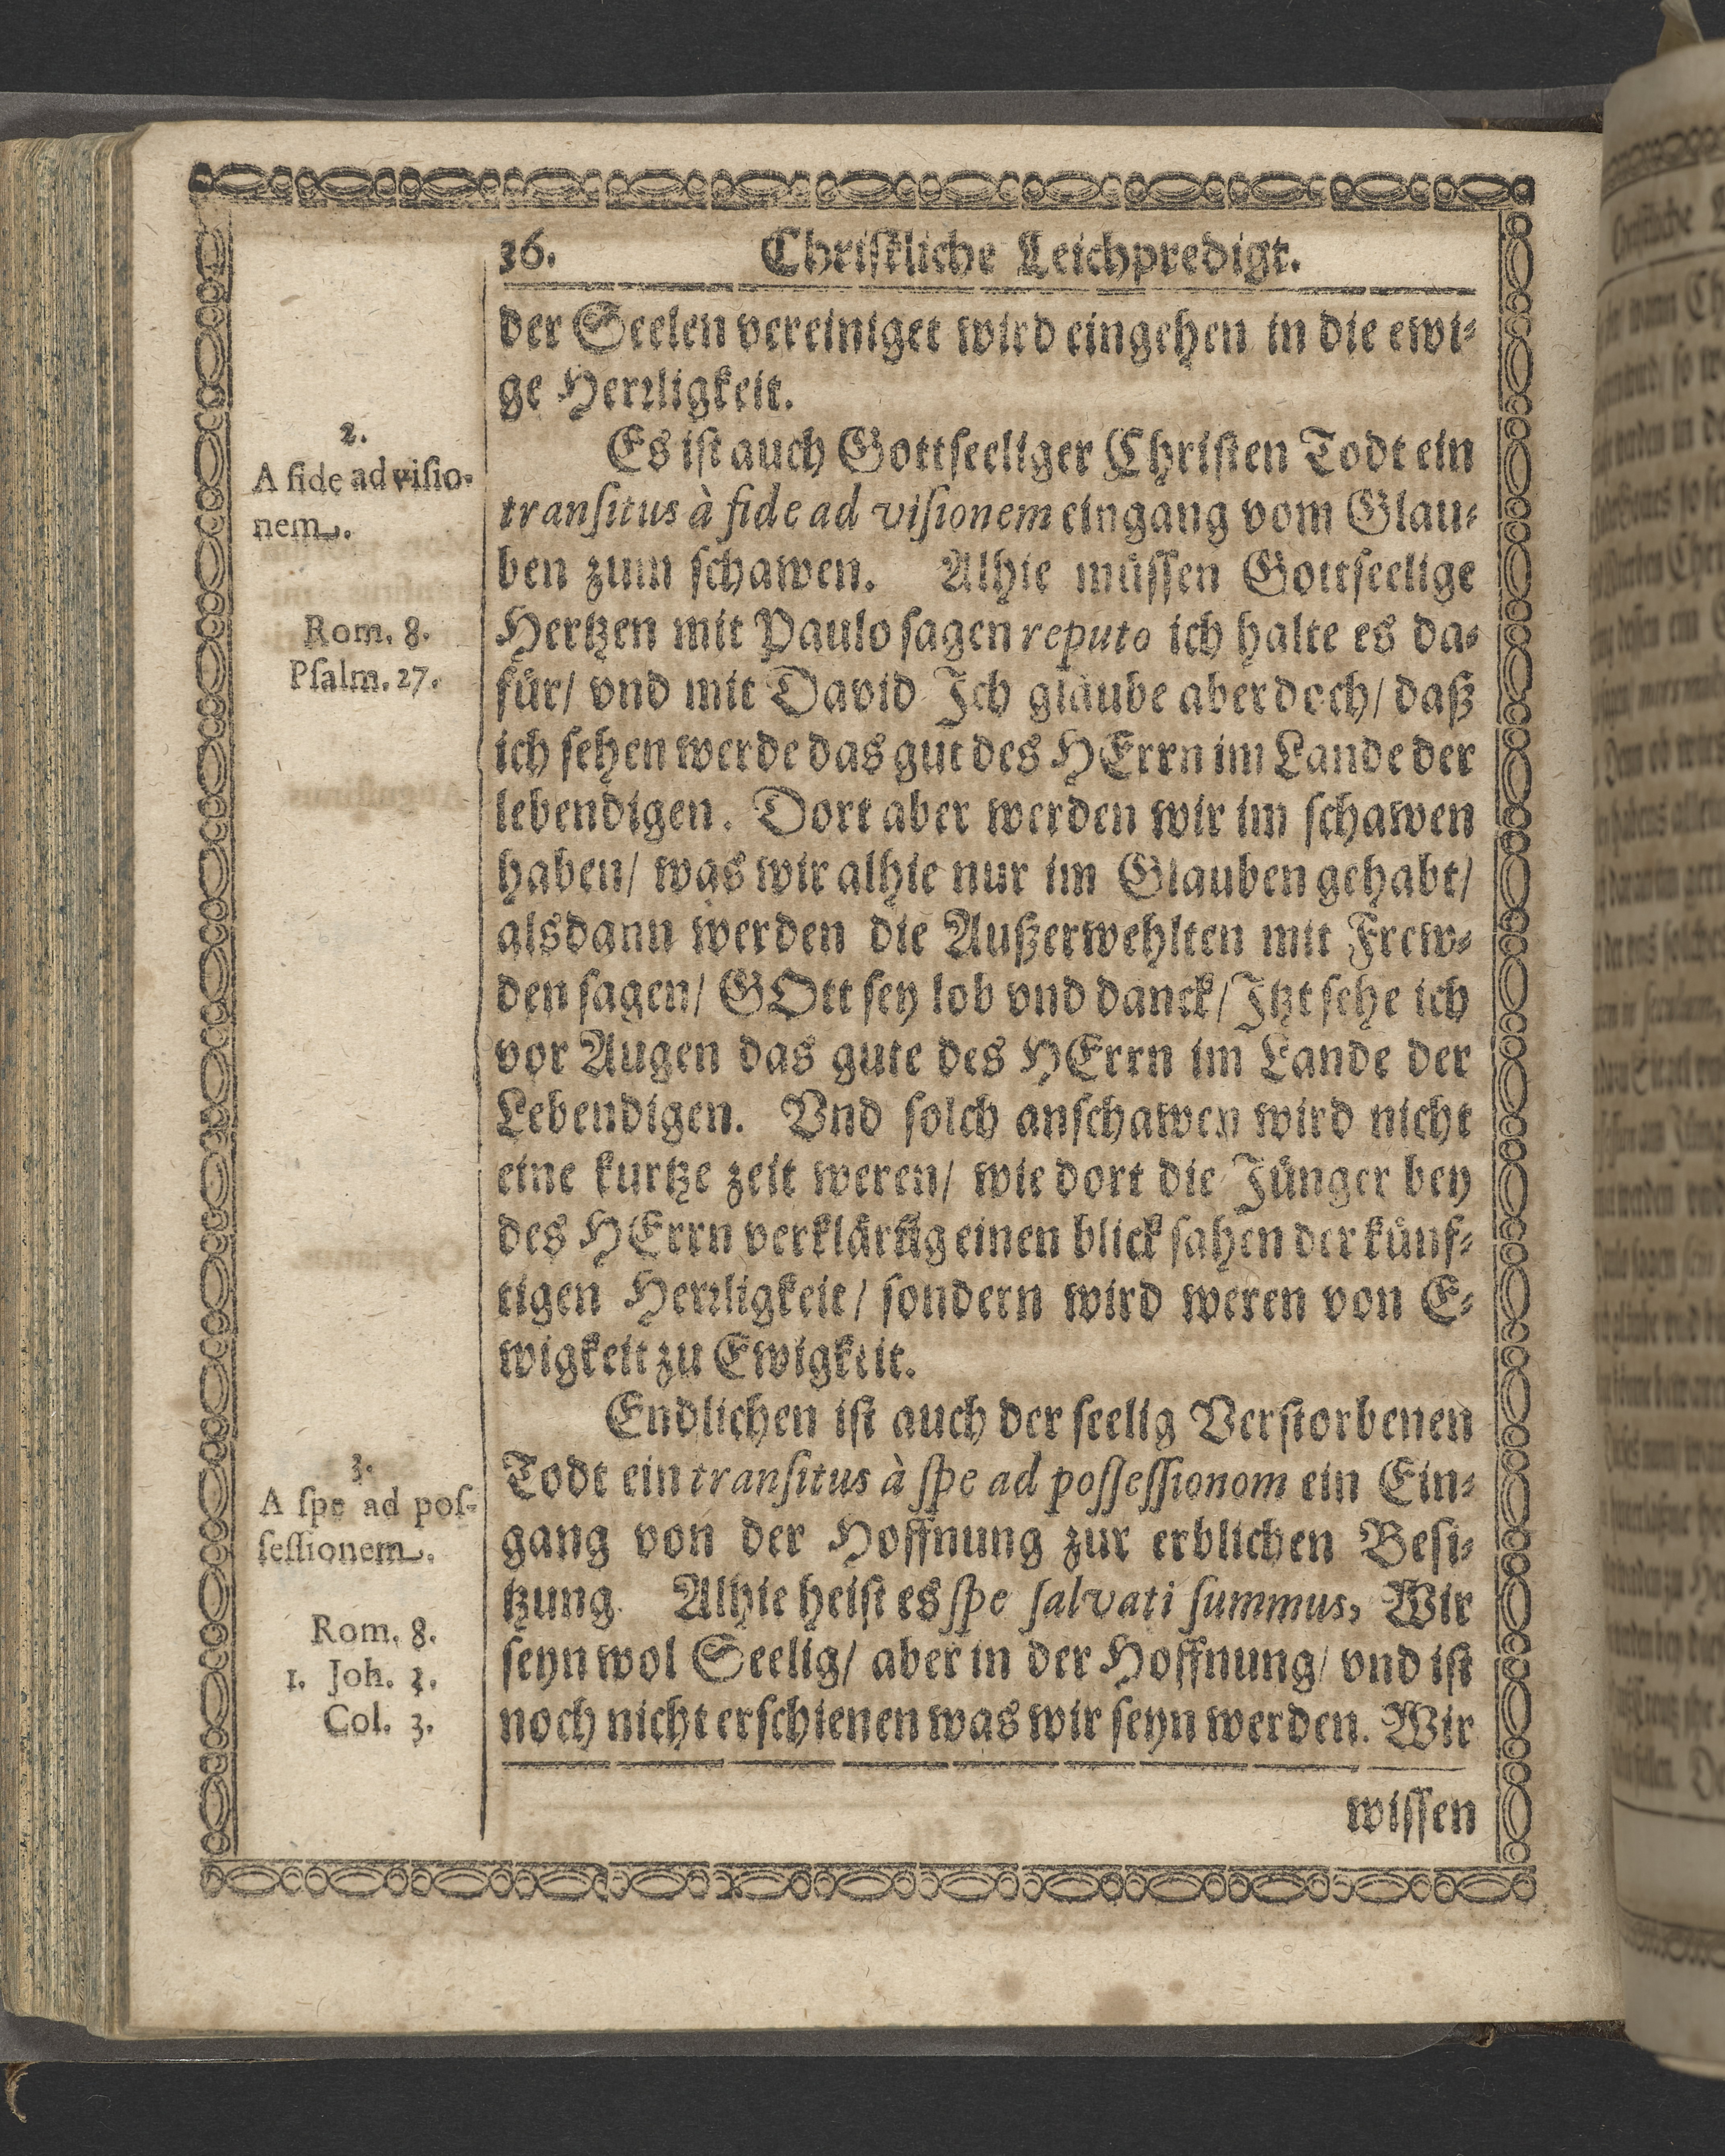 36. Chriſtliche Leichpredigt.
der Seelen vereiniget wird eingehen in die ewi⸗
ge Herꝛligkeit.
2.
A fide ad viſio-
nem.
Es iſt auch Gottſeeliger Chriſten Todt ein
tranſitus à fide ad viſionem eingang vom Glau⸗
ben zum ſchawen. Alhie muͤſſen Gottſeelige
Rom. 8.
Pſalm. 27.
Hertzen mit Paulo ſagen reputo ich halte es da⸗
fuͤr/ vnd mit David Ich glaube aber doch/ daß
ich ſehen werde das gut des HErrn im Lande der
lebendigen. Dort aber werden wir im ſchawen
haben/ was wir alhie nur im Glauben gehabt/
alsdann werden die Außerwehlten mit Frew⸗
den ſagen/ GOtt ſey lob vnd danck/ Itzt ſehe ich
vor Augen das gute des HErrn im Lande der
Lebendigen. Vnd ſolch anſchawen wird nicht
eine kurtze zeit weren/ wie dort die Juͤnger bey
des HErrn verklaͤrũg einen blick ſahen der kuͤnf⸗
tigen Herꝛligkeit/ ſondern wird weren von E⸗
wigkeit zu Ewigkeit.
3.
A ſpe ad poſ-
ſeſſionem.
Endlichen iſt auch der ſeelig Verſtorbenen
Todt ein tranſitus à ſpe ad poſſeſſionom ein Ein⸗
gang von der Hoffnung zur erblichen Beſi⸗
tzung. Alhie heiſt es ſpe ſalvati ſummus, Wir
Rom. 8.
1. Joh. 3.
Col. 3.
ſeyn wol Seelig/ aber in der Hoffnung/ vnd iſt
noch nicht erſchienen was wir ſeyn werden. Wir
wiſſen